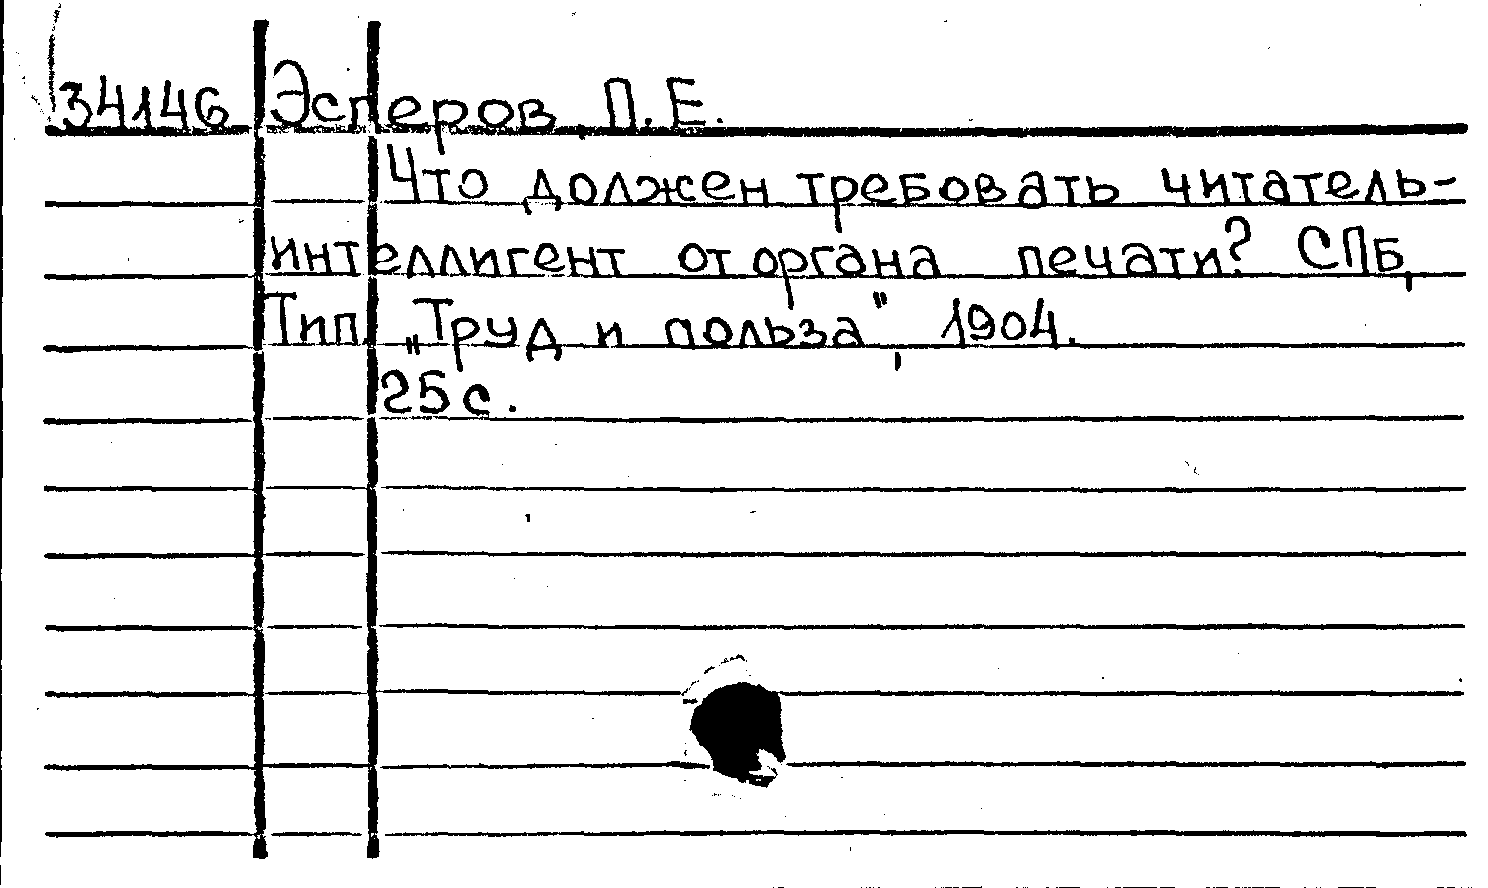 34146 Эсперов П.Е.
Что должен требовать читатель-
интеллигент от органа печати? СПБ,
Тип. „Труд и польза", 1904.
25 с.